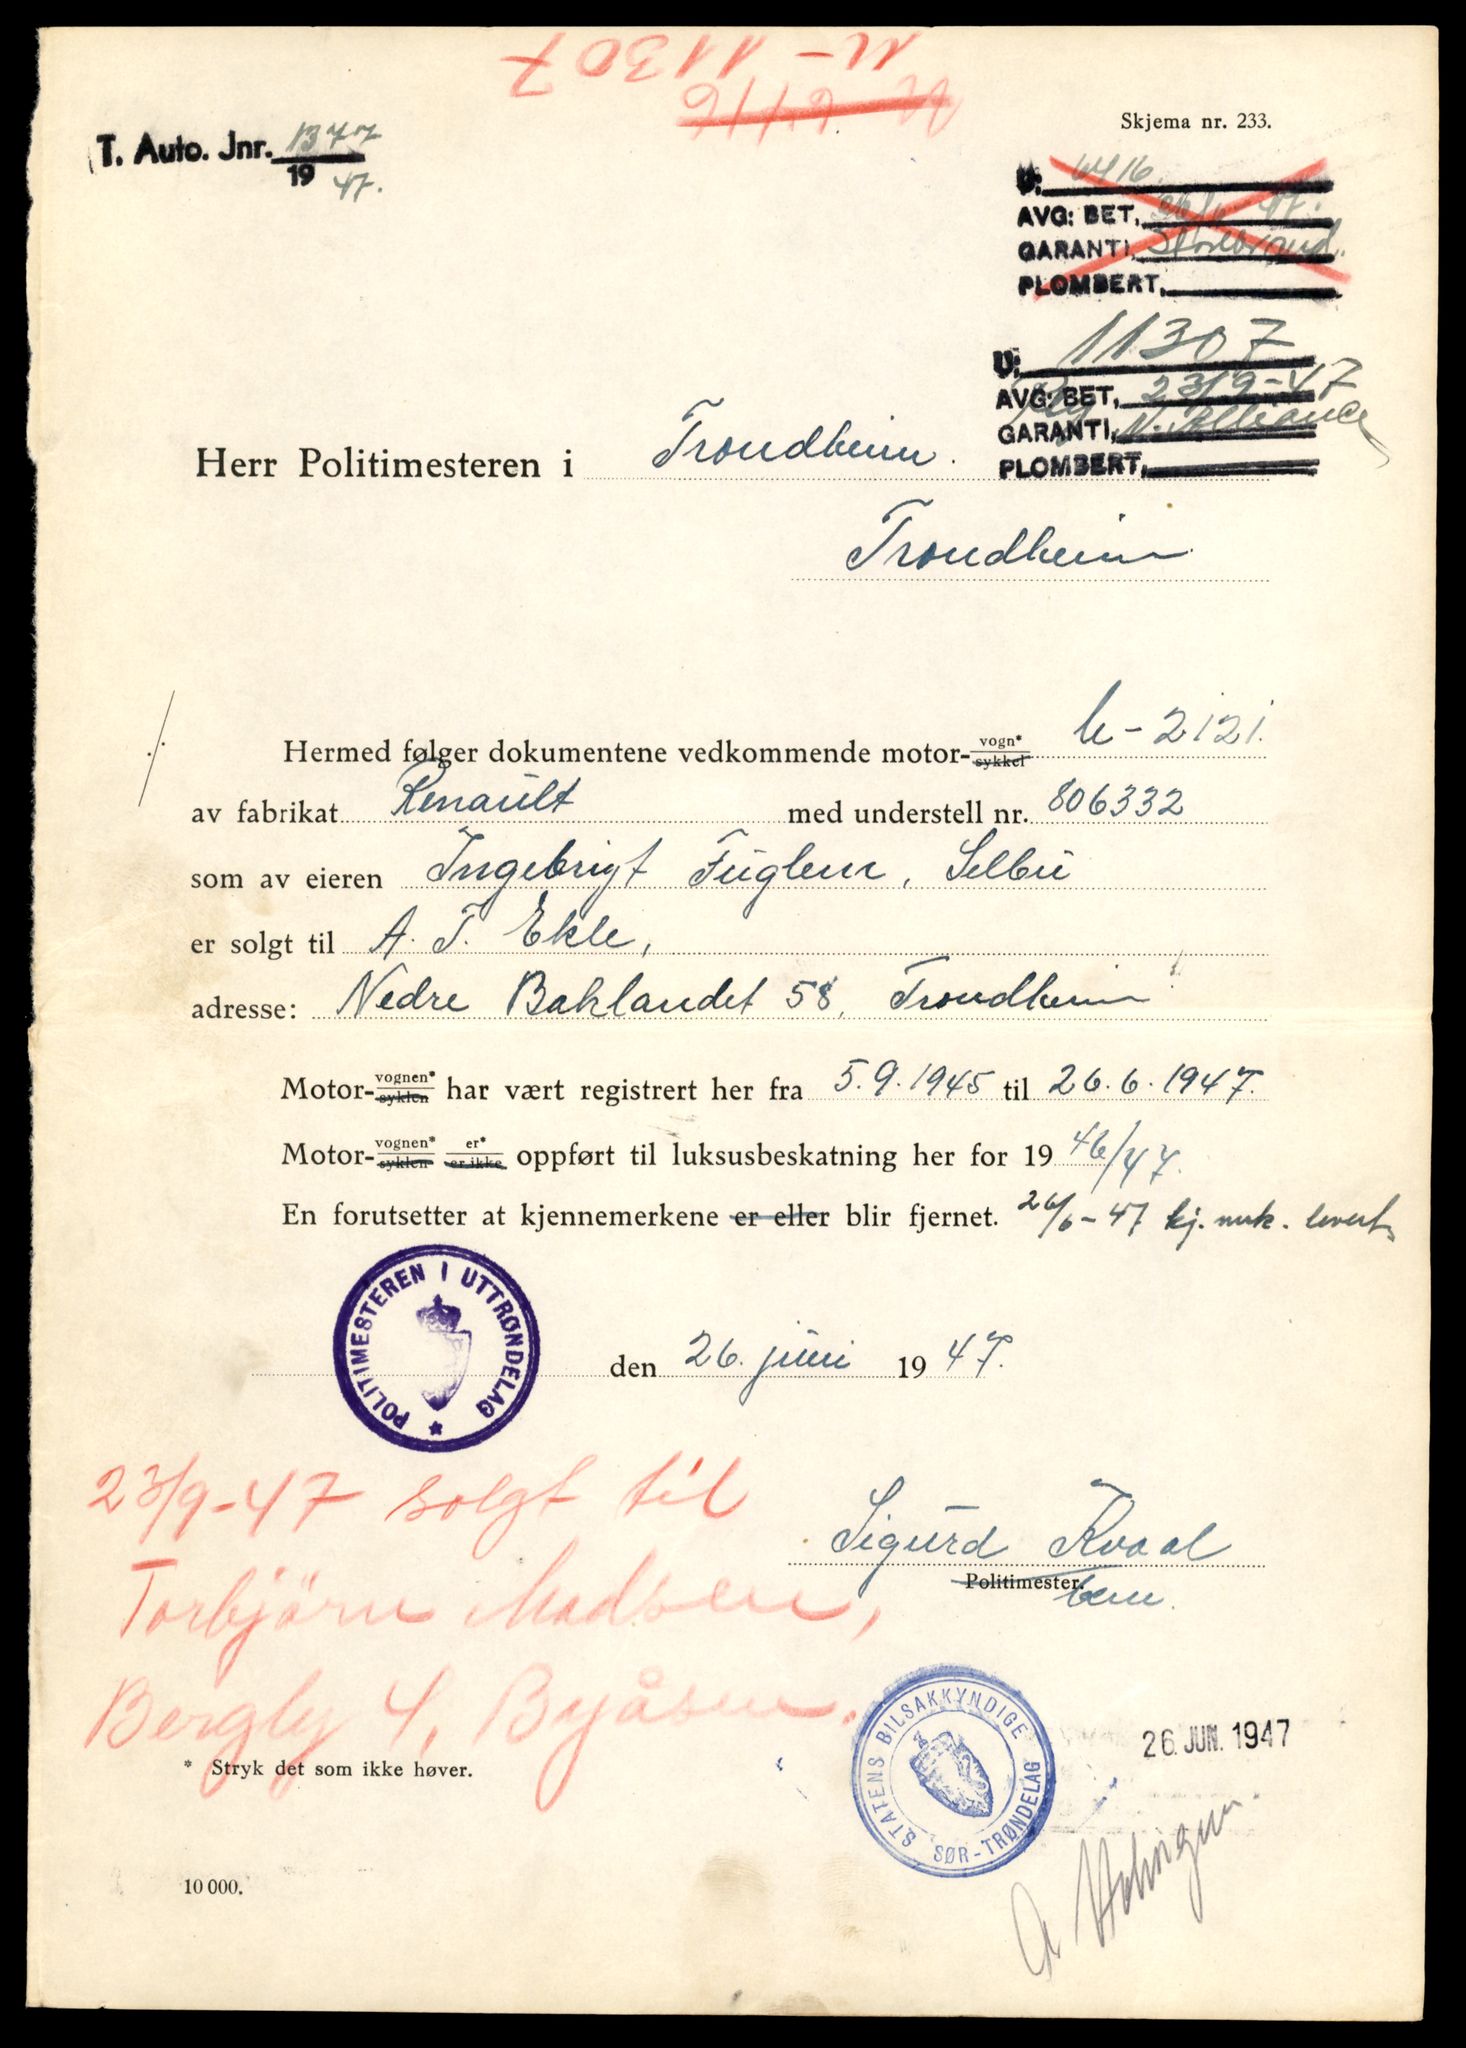 U-11307
U 6416
Skjema nr. 233.
T. Auto. Jnr. 1377
19 47.
U: 6416.
AVG: BET, 26/6-47.
GARANTI, Storebrand.
PLOMBERT,
U: 11307
AVG: BET, 23/9-47
GARANTI, N. Alliance
PLOMBERT,
Herr Politimesteren i Trondheim.
Trondheim
./.
Hermed følger dokumentene vedkommende motor-vogn* sykkel U-2121.
av fabrikat Renault med understell nr. 806332
som av eieren Ingebrigt Fuglem, Selbu
er solgt til A. T. Ekle,
adresse: Nedre Baklandet 58, Trondheim
Motor-vognen* syklen har vært registrert her fra 5.9.1945 til 26.6.1947.
Motor-vognen* syklen er* er ikke oppført til luksusbeskatning her for 1946/47.
En forutsetter at kjennemerkene er eller blir fjernet. 26/6-47 kj. merk. levert.
POLITIMESTEREN I UTTRØNDELAG
den 26. juni 1947.
23/9-47 solgt til
Torbjörn Madsen,
Bergly 4, Byåsen.
Sigurd Kvaal
Politimester.
bem.
* Stryk det som ikke høver.
STATENS BILSAKKYNDIGE
SØR-TRØNDELAG
26. JUN. 1947
10 000.